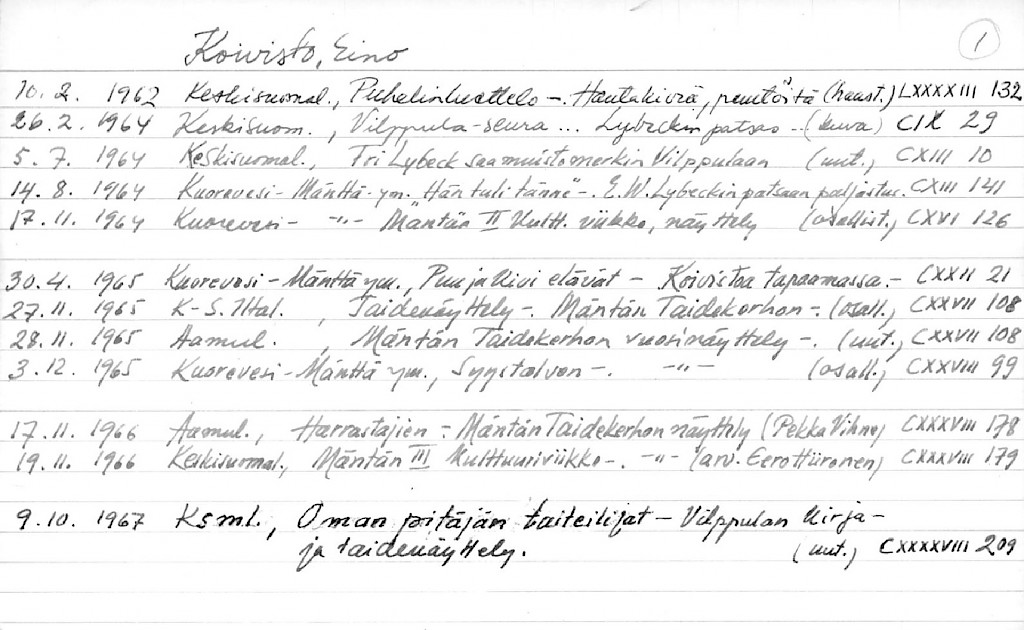 Koivisto, Eino
1
10. 2. 1962 Keskisuomal., Puhelinluettelo -. Hautakiviä, puutöitä (haast.) LXXXXIII 132
26. 2. 1964 Keskisuom., Vilppula-seura ... Lybeckin patsas -. (kuva) CIX 29
5. 7. 1964 Keskisuomal., Tri Lybeck saa muistomerkin Vilppulaan (uut.) CXIII 10
14. 8. 1964 Kuorevesi-Mänttä-ym. "Hän tuli tänne" -. E.W. Lybeckin patsaan paljastus. CXIII 141
17. 11. 1964 Kuorevesi- -"- Mäntän II Kultt. viikko, näyttely (osallist.) CXVI 126
30. 4. 1965 Kuorevesi-Mänttä ym., Puu ja kivi elävät - Koivistoa tapaamassa.- CXXII 21
27. 11. 1965 K-S. Iltal., Taidenäyttely -. Mäntän Taidekerhon -. (osall.) CXXVII 108
28. 11. 1965 Aamul., Mäntän Taidekerhon vuosinäyttely -. (uut.) CXXVII 108
3. 12. 1965 Kuorevesi-Mänttä ym., Syystalven -. -"- (osall.) CXXVIII 99
17. 11. 1966 Aamul., Harrastajien -. Mäntän Taidekerhon näyttely (Pekka Vihne) CXXXVIII 178
19. 11. 1966 Keskisuomal., Mäntän III Kulttuuriviikko -. -"- (arv. Eero Hiironen) CXXXVIII 179
9. 10. 1967 Ksml., Oman pitäjän taiteilijat - Vilppulan kirja-
ja taidenäyttely. (uut.) CXXXXVIII 209